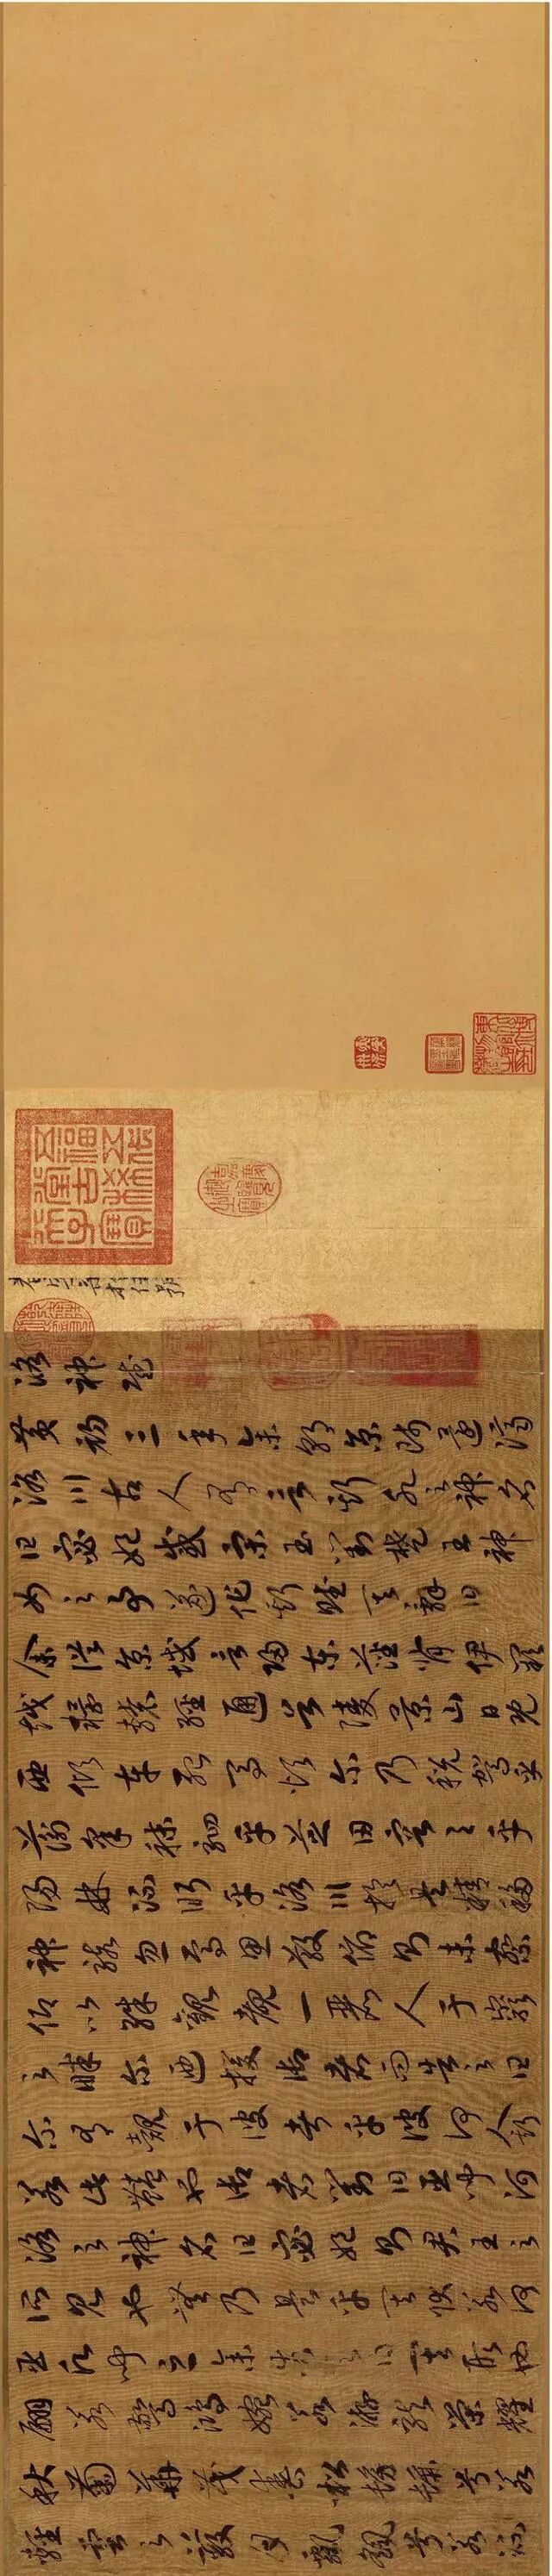 洛神賦
黄初三年余朝京師還濟
洛川古人有言斯水之神名
曰宓妃感宋玉對楚王神
女之事遂作斯賦其辭曰
余從京域言歸東藩背伊闕
越轘轅經通谷陵景山日既
西傾車殆馬煩尔乃税駕乎
蘅皋秣駟乎芝田容與乎
陽林流眄乎洛川於是精移
神駭忽焉思散俯則未察
仰以殊觀覩一麗人于巖
之畔尔迺援御者而告之曰
尔有覿于彼者乎彼何人斯
若此豔也御者對曰臣聞河
洛之神名曰宓妃則君王之
所見也無乃是乎其狀若何
臣願聞之余告之曰其形也
翩若驚鴻婉若游龍榮曜
秋菊華茂春松髣髴兮若
輕雲之蔽月飄颻兮若流